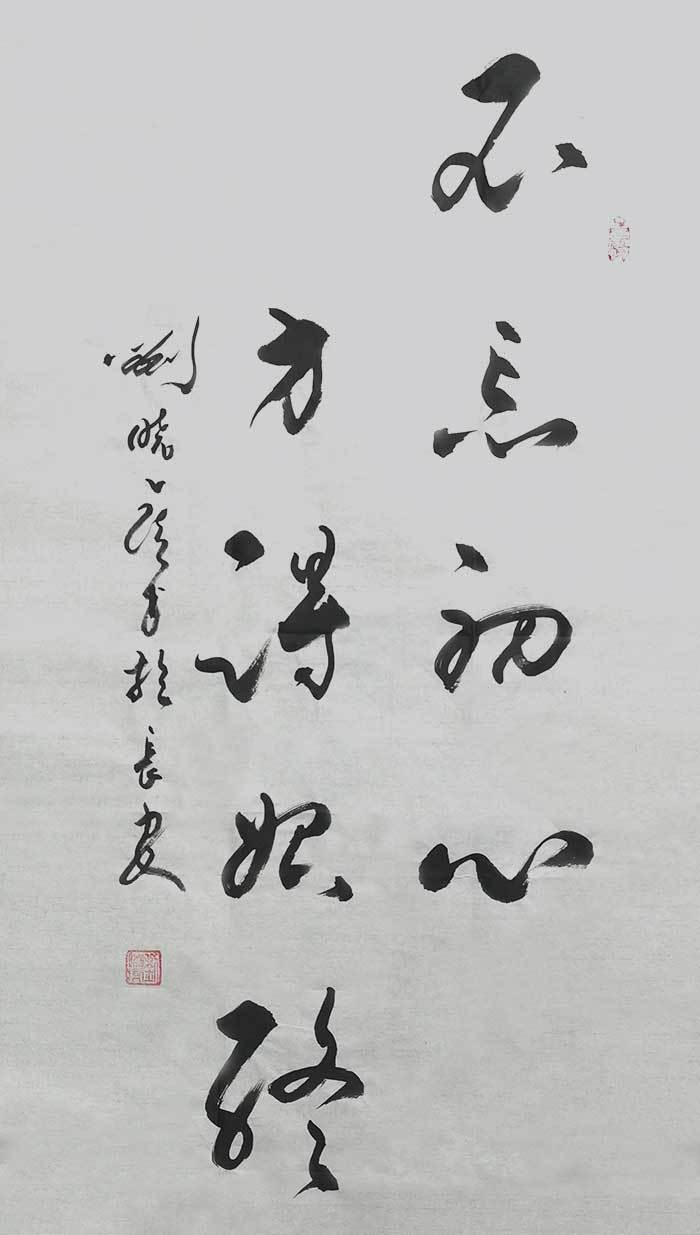 不忘初心
方得始終
劉曉書於長安